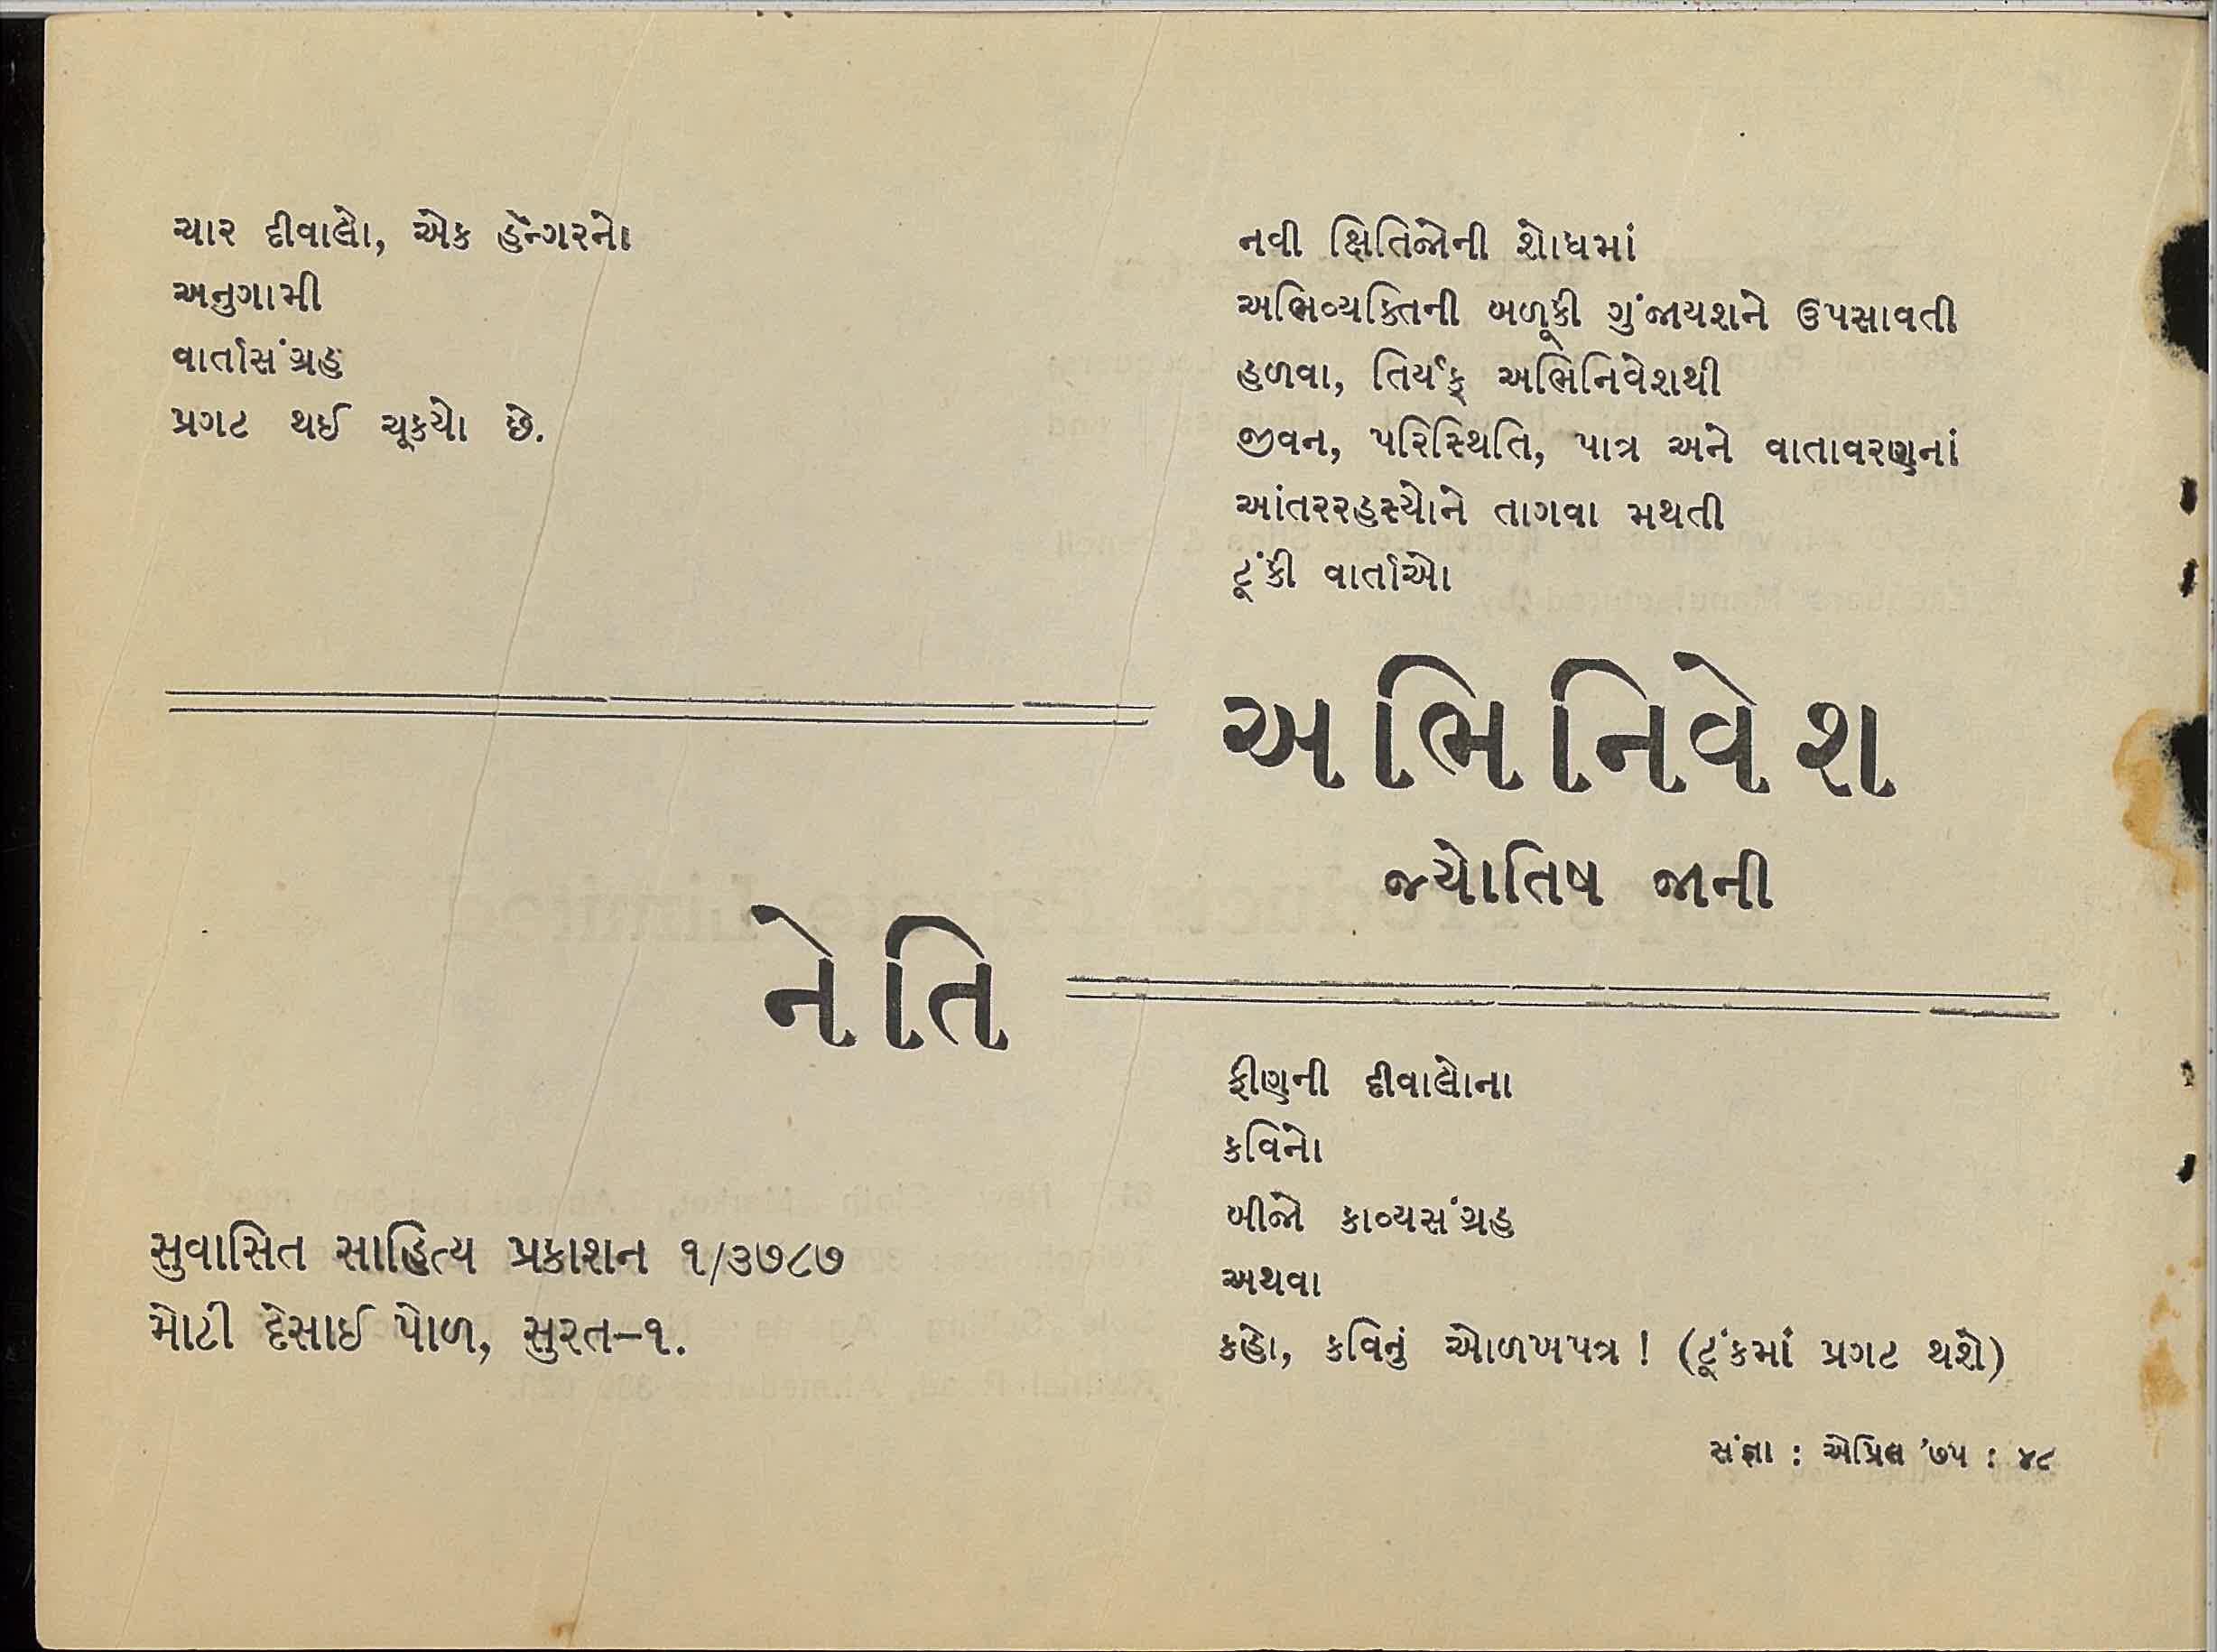 ચાર દીવાલો, એક હૅન્ગરનો
અનુગામી
વાર્તાસંગ્રહ
પ્રગટ થઈ ચૂક્યો છે.
નવી ક્ષિતિજોની શોધમાં
અભિવ્યક્તિની બળૂકી ગુંજાયશને ઉપસાવતી
હળવા, તિર્યક્ અભિનિવેશથી
જીવન, પરિસ્થિતિ, પાત્ર અને વાતાવરણનાં
આંતરરહસ્યોને તાગવા મથતી
ટૂંકી વાર્તાઓ
અભિનિવેશ
જ્યોતિષ જાની
નેતિ
ફીણની દીવાલોના
કવિનો
બીજો કાવ્યસંગ્રહ
અથવા
કહો, કવિનું ઓળખપત્ર ! (ટૂંકમાં પ્રગટ થશે)
સુવાસિત સાહિત્ય પ્રકાશન ૧/૩૭૮૭
મોટી દેસાઈ પોળ, સુરત–૧.
સંજ્ઞા : એપ્રિલ ’૭૫ : ૪૮